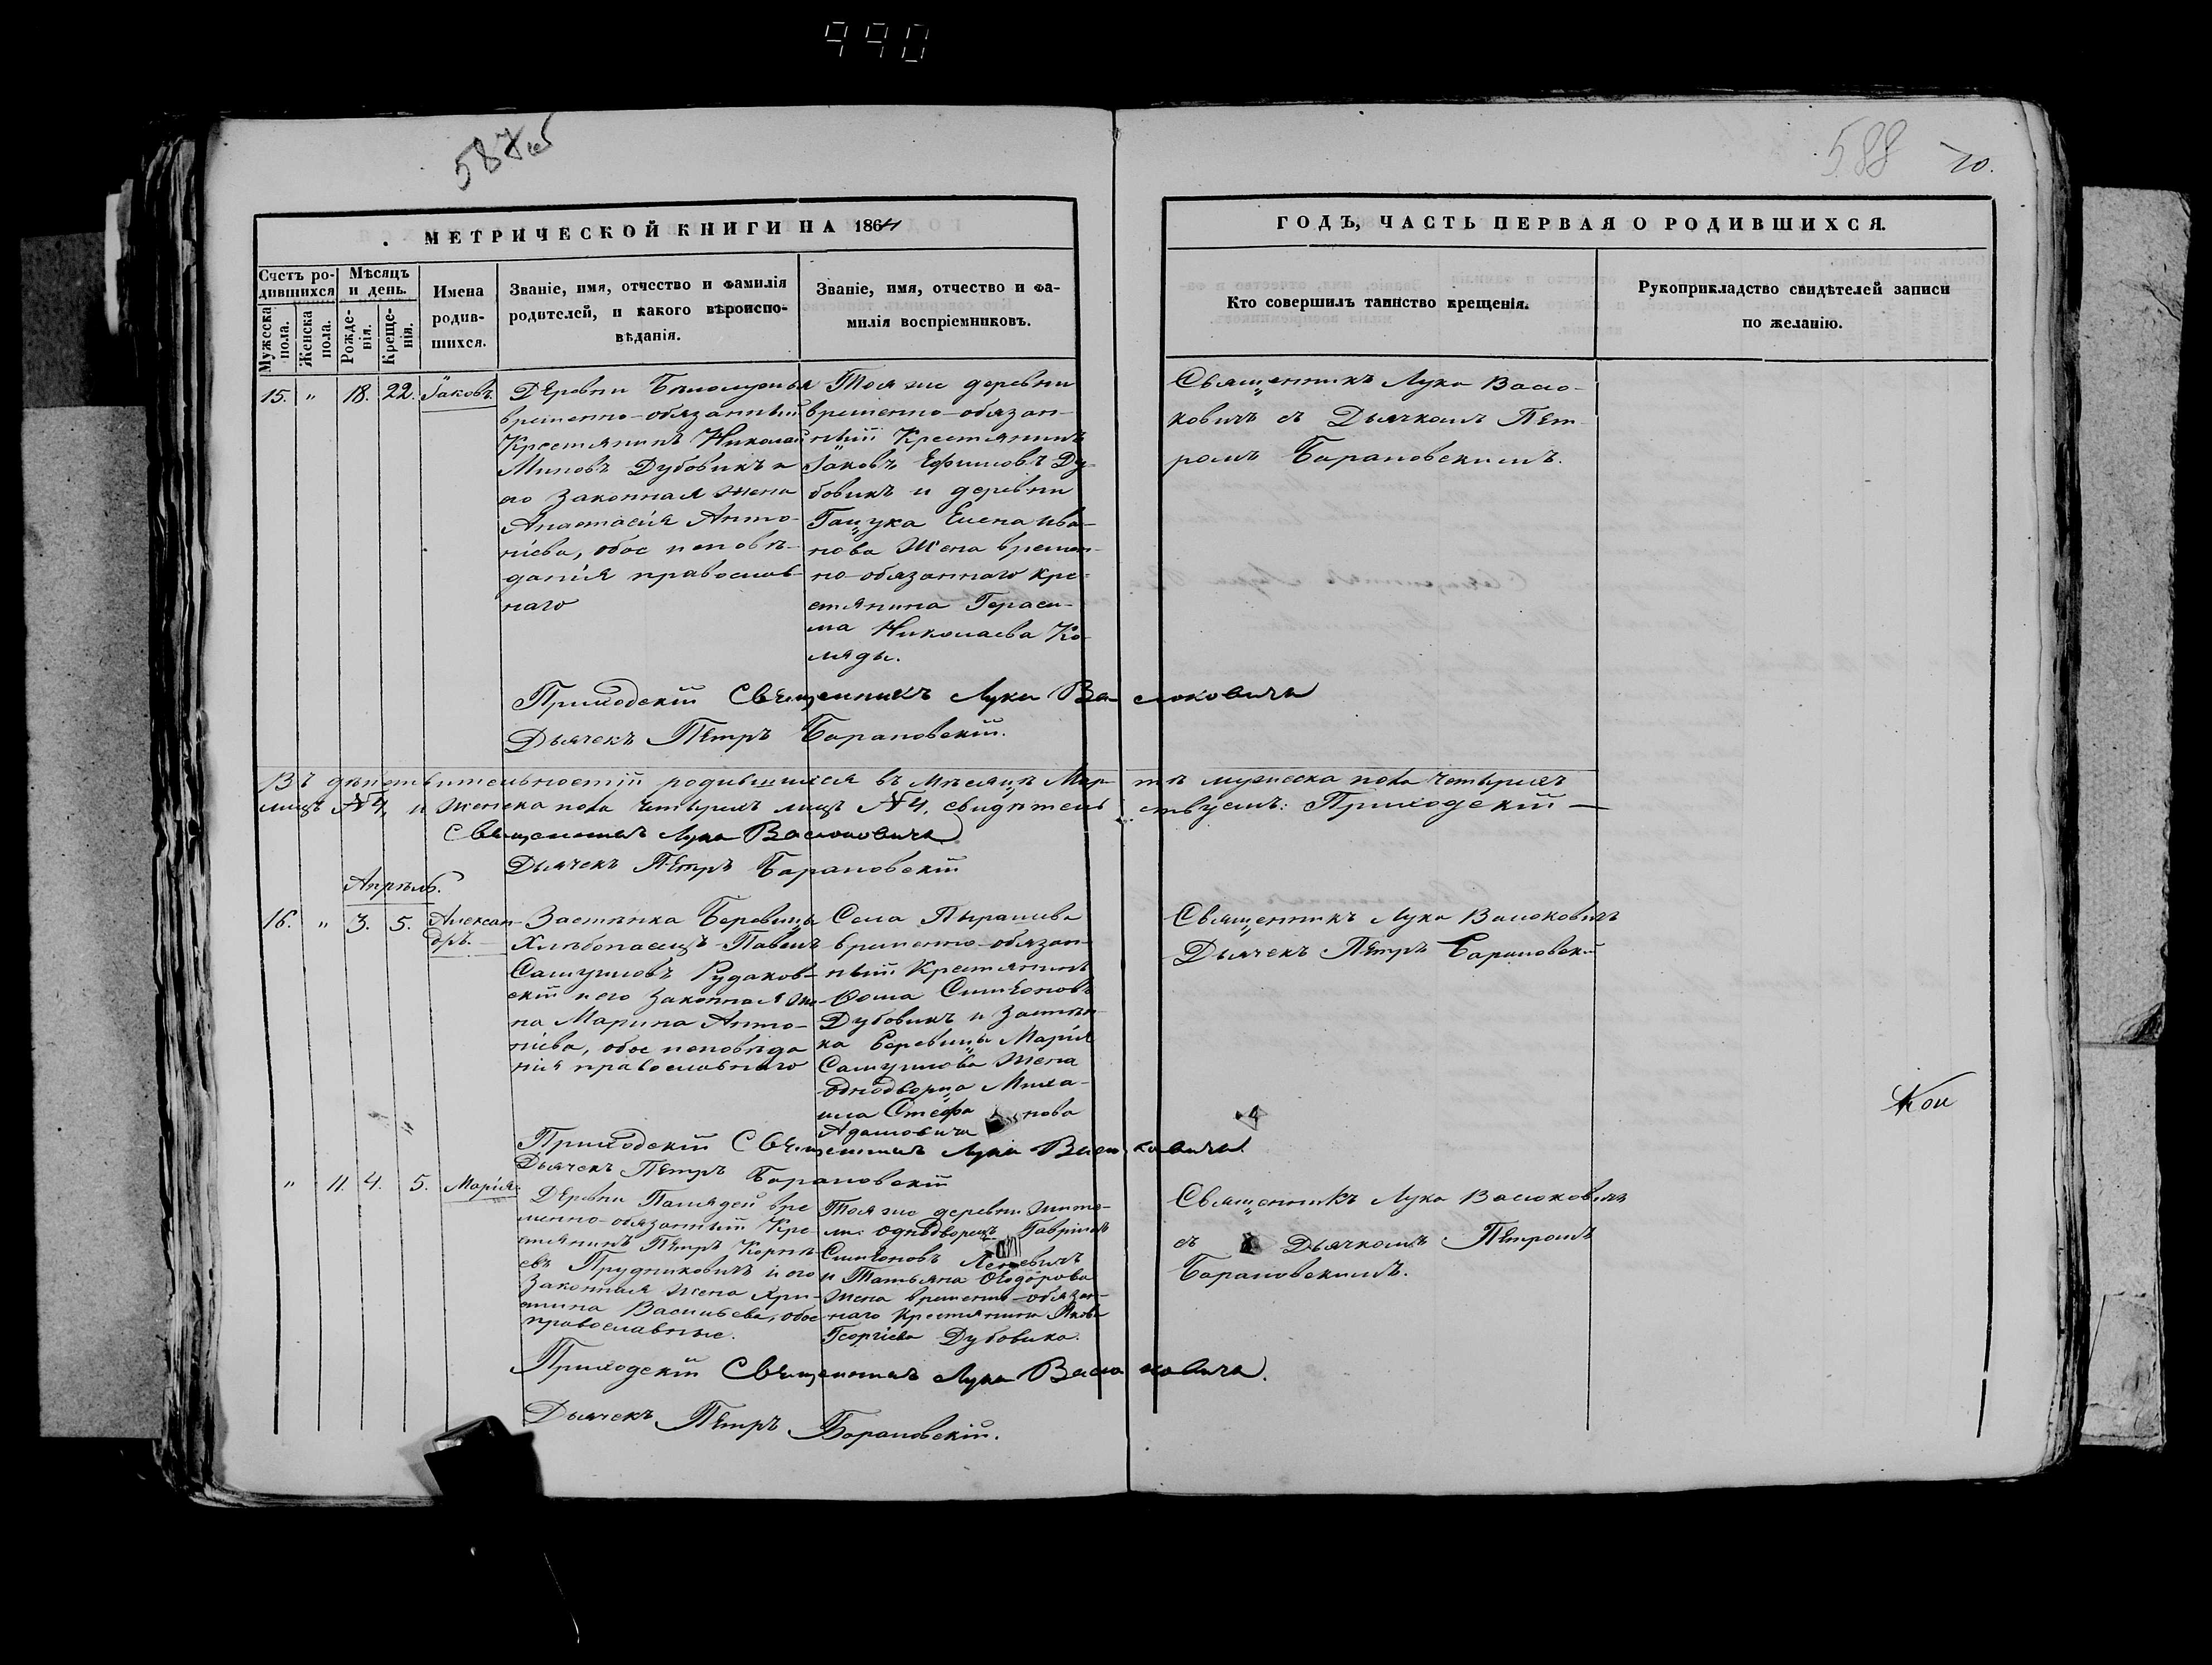 990
587 об
588
70.
МЕТРИЧЕСКОЙ КНИГИ НА 1864
ГОДЪ, ЧАСТЬ ПЕРВАЯ О РОДИВШИХСЯ.
Счетъ ро-
дившихся
Мужеска
пола.
Женска
пола.
Мѣсяцъ
и день.
Рожде-
нія.
Креще-
нія.
Имена
родив-
шихся.
Званіе, имя, отчество и фамилія
родителей, и какого вѣроиспо-
вѣданія.
Званіе, имя, отчество и фа-
милія воспріемниковъ.
Кто совершилъ таинство крещенія.
Рукоприкладство свидѣтелей записи
по желанію.
15. " 18. 22. Іаковъ.
Деревни
временно-обязанный
Крестянинъ Николай
Миновъ Дубовикъ и
его законная жена
Анастасія Анто-
ніева, обое исповѣ-
данія православ-
наго
Тоя же деревни
временно-обязан-
ный Крестянинъ
Іаковъ Ефимовъ Ду-
бовикъ и деревни
Гацука Елена Ива-
нова Жена времен-
но-обязаннаго кре-
стянина Гераси-
ма Николаева Ко-
ляды.
Священникъ Лука Васю-
ковичъ съ Дьячкомъ Пет-
ромъ Барановскимъ.
Приходскій Священникъ Лука Васюковичъ
Дьячекъ Петръ Барановскій.
Въ дѣйствительностій родившихся въ Мѣсяцѣ Мартѣ мужеска пола четырехъ
лицъ №4, и женска пола четырехъ лицъ №4, свидѣтельствуемъ: Приходскій
Священникъ Лука Васюковичъ
Дьячекъ Петръ Барановскій
Апрѣль.
16. " 3. 5. Алексан-
дръ.
Застѣнка Беревицы
Хлѣбопашецъ Павелъ
Самуиловъ Рудаков-
скій и его законная же-
на Марина Анто-
ніева, обое исповѣда
нія православнаго
Села Пырашева
временно-обязан-
ный Крестянинъ
Фома Симеоновъ
Дубовикъ и Застѣн-
ка Беревицы Марія
Самуилова жена
однодворца Миха-
ила Стефанова
Адамовича
Священникъ Лука Васюковичъ
Дьячекъ Петръ Барановскій
Кон
Приходскій Священникъ Лука Васюковичъ
Дьячекъ Петръ Барановскій
" 11. 4. 5. Марія
Деревни вре
менно-обязанный Кре
стянинъ Петръ Корнѣ-
евъ Прудниковичъ и его
Законная жена Хри-
стина Васильева, обое
православные.
Тоя же деревни
однодворецъ Гавріилъ
Симеоновъ
и Татьяна Ѳеодорова
жена временно-обязан-
наго Крестянина Якова
Георгіева Дубовика.
Священникъ Лука Васюковичъ
съ Дьячкомъ Петромъ
Барановскимъ.
Приходскій Священникъ Лука Васюковичъ.
Дьячекъ Петръ Барановскій.